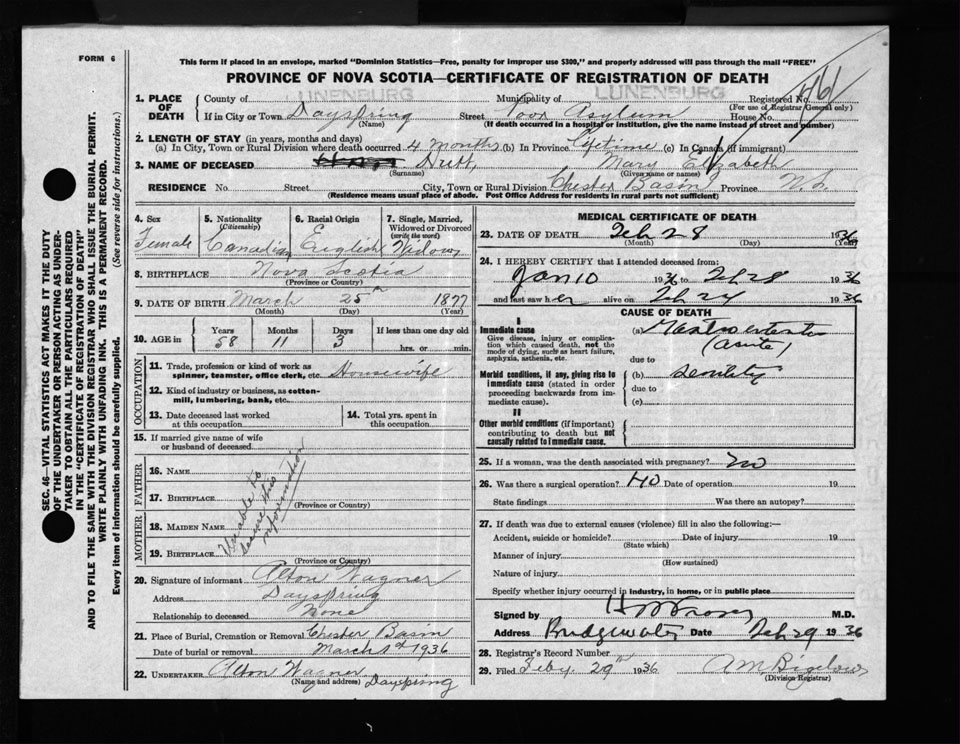 FORM 6
This form if placed in an envelope, marked "Dominion Statistics—Free, penalty for improper use $300," and properly addressed will pass through the mail "FREE"
PROVINCE OF NOVA SCOTIA—CERTIFICATE OF REGISTRATION OF DEATH
SEC. 46—VITAL STATISTICS ACT MAKES IT THE DUTY
OF THE UNDERTAKER OR PERSON ACTING AS UNDER-
TAKER TO OBTAIN ALL THE PARTICULARS REQUIRED
IN THE "CERTIFICATE OF REGISTRATION OF DEATH"
AND TO FILE THE SAME WITH THE DIVISION REGISTRAR WHO SHALL ISSUE THE BURIAL PERMIT.
WRITE PLAINLY WITH UNFADING INK. THIS IS A PERMANENT RECORD.
Every item of information should be carefully supplied. (See reverse side for instructions.)
1. PLACE OF DEATH County of LUNENBURG Municipality of LUNENBURG Registered No.
(For use of Registrar General only)
If in City or Town Dayspring Street Poor Asylum House No.
(Name) (If death occurred in a hospital or institution, give the name instead of street and number)
2. LENGTH OF STAY (in years, months and days)
(a) In City, Town or Rural Division where death occurred 4 months (b) In Province Lifetime (c) In Canada (if immigrant)
3. NAME OF DECEASED Hutt, Mary Elizabeth
(Surname) (Given name or names)
RESIDENCE No. Street City, Town or Rural Division Chester Basin Province N.S.
(Residence means usual place of abode. Post Office Address for residents in rural parts not sufficient)
4. Sex Female
5. Nationality (Citizenship) Canadian
6. Racial Origin English
7. Single, Married, Widowed or Divorced (write the word) Widow
8. BIRTHPLACE Nova Scotia
(Province or Country)
9. DATE OF BIRTH March 25th 1877
(Month) (Day) (Year)
10. AGE in Years 58 Months 11 Days 3 If less than one day old hrs. or min.
OCCUPATION
11. Trade, profession or kind of work as spinner, teamster, office clerk, etc. Housewife
12. Kind of industry or business, as cotton-mill, lumbering, bank, etc.
13. Date deceased last worked at this occupation
14. Total yrs. spent in this occupation
15. If married give name of wife or husband of deceased
FATHER
16. NAME
17. BIRTHPLACE
(Province or Country)
MOTHER
18. MAIDEN NAME
19. BIRTHPLACE
(Province or Country)
Unable to
secure this
information
20. Signature of informant Alton Wagner
Address Dayspring
Relationship to deceased None
21. Place of Burial, Cremation or Removal Chester Basin
Date of burial or removal March 1st 1936
22. UNDERTAKER Alton Wagner Dayspring
(Name and address)
MEDICAL CERTIFICATE OF DEATH
23. DATE OF DEATH Feb 28 1936
(Month) (Day) (Year)
24. I HEREBY CERTIFY that I attended deceased from:
Jan 10 1936 to Feb 28 1936
and last saw her alive on Feb 24 1936
CAUSE OF DEATH
I
Immediate cause
Give disease, injury or complication which caused death, not the mode of dying, such as heart failure, asphyxia, asthenia, etc.
(a)
(acute)
due to
Morbid conditions, if any, giving rise to immediate cause (stated in order proceeding backwards from immediate cause).
(b) senility
due to
(c)
II
Other morbid conditions (if important) contributing to death but not causally related to immediate cause.
25. If a woman, was the death associated with pregnancy? No
26. Was there a surgical operation? No Date of operation 19
State findings Was there an autopsy?
27. If death was due to external causes (violence) fill in also the following:—
Accident, suicide or homicide? Date of injury 19
(State which)
Manner of injury
(How sustained)
Nature of injury
Specify whether injury occurred in industry, in home, or in public place
Signed by M.D.
Address Bridgewater Date Feb 29 1936
28. Registrar's Record Number
29. Filed Feby. 29th 1936 A M Bigelow
(Division Registrar)